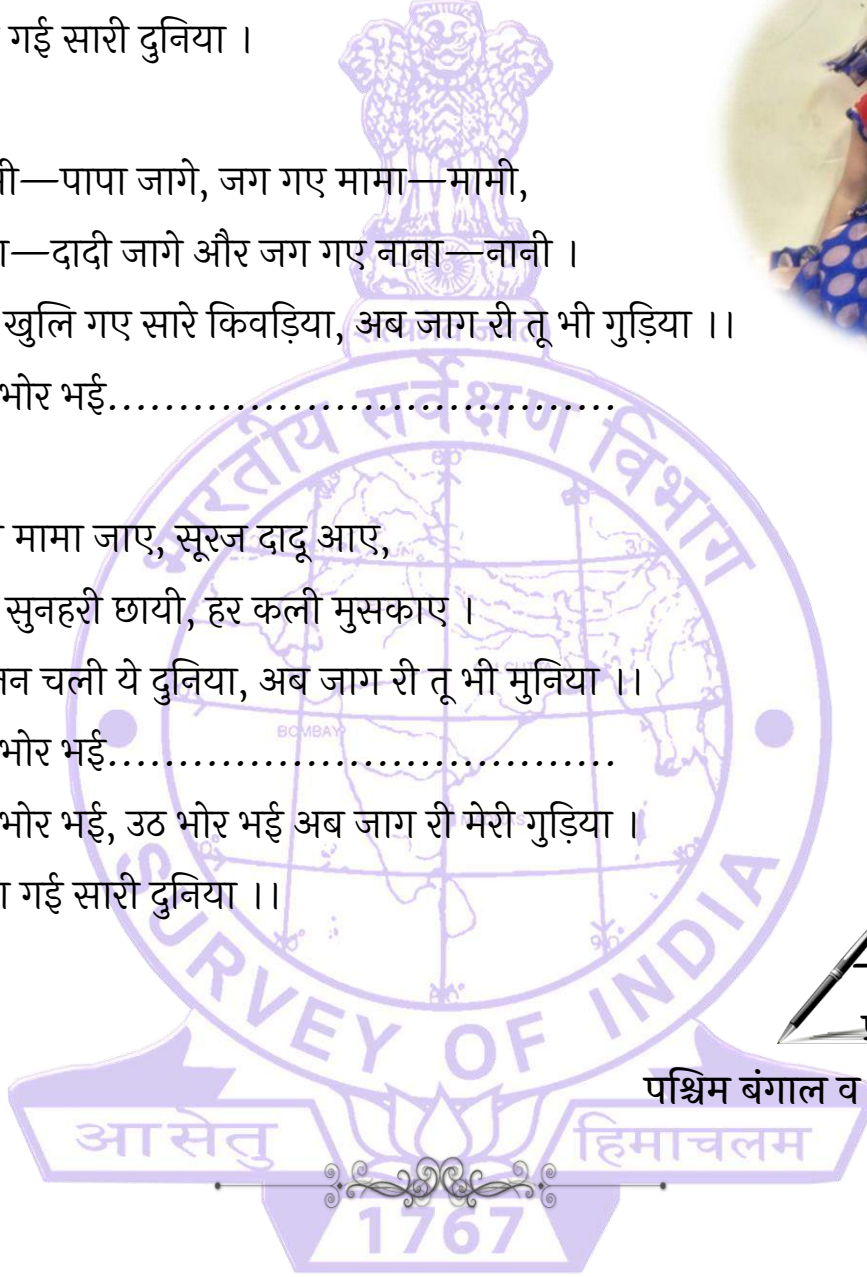 गई सारी दुनिया ।
—पापा जागे, जग गए मामा—मामी,
—दादी जागे और जग गए नाना—नानी ।
खुलि गए सारे किवड़िया, अब जाग री तू भी गुड़िया ।।
भोर भई....................................
मामा जाए, सूरज दादू आए,
सुनहरी छायी, हर कली मुसकाए ।
चली ये दुनिया, अब जाग री तू भी मुनिया ।।
भोर भई....................................
भोर भई, उठ भोर भई अब जाग री मेरी गुड़िया ।
गई सारी दुनिया ।।
पश्चिम बंगाल व
सत्यमेव जयते
भारतीय सर्वेक्षण विभाग
BOMBAY
SURVEY OF INDIA
आसेतु हिमाचलम
1767